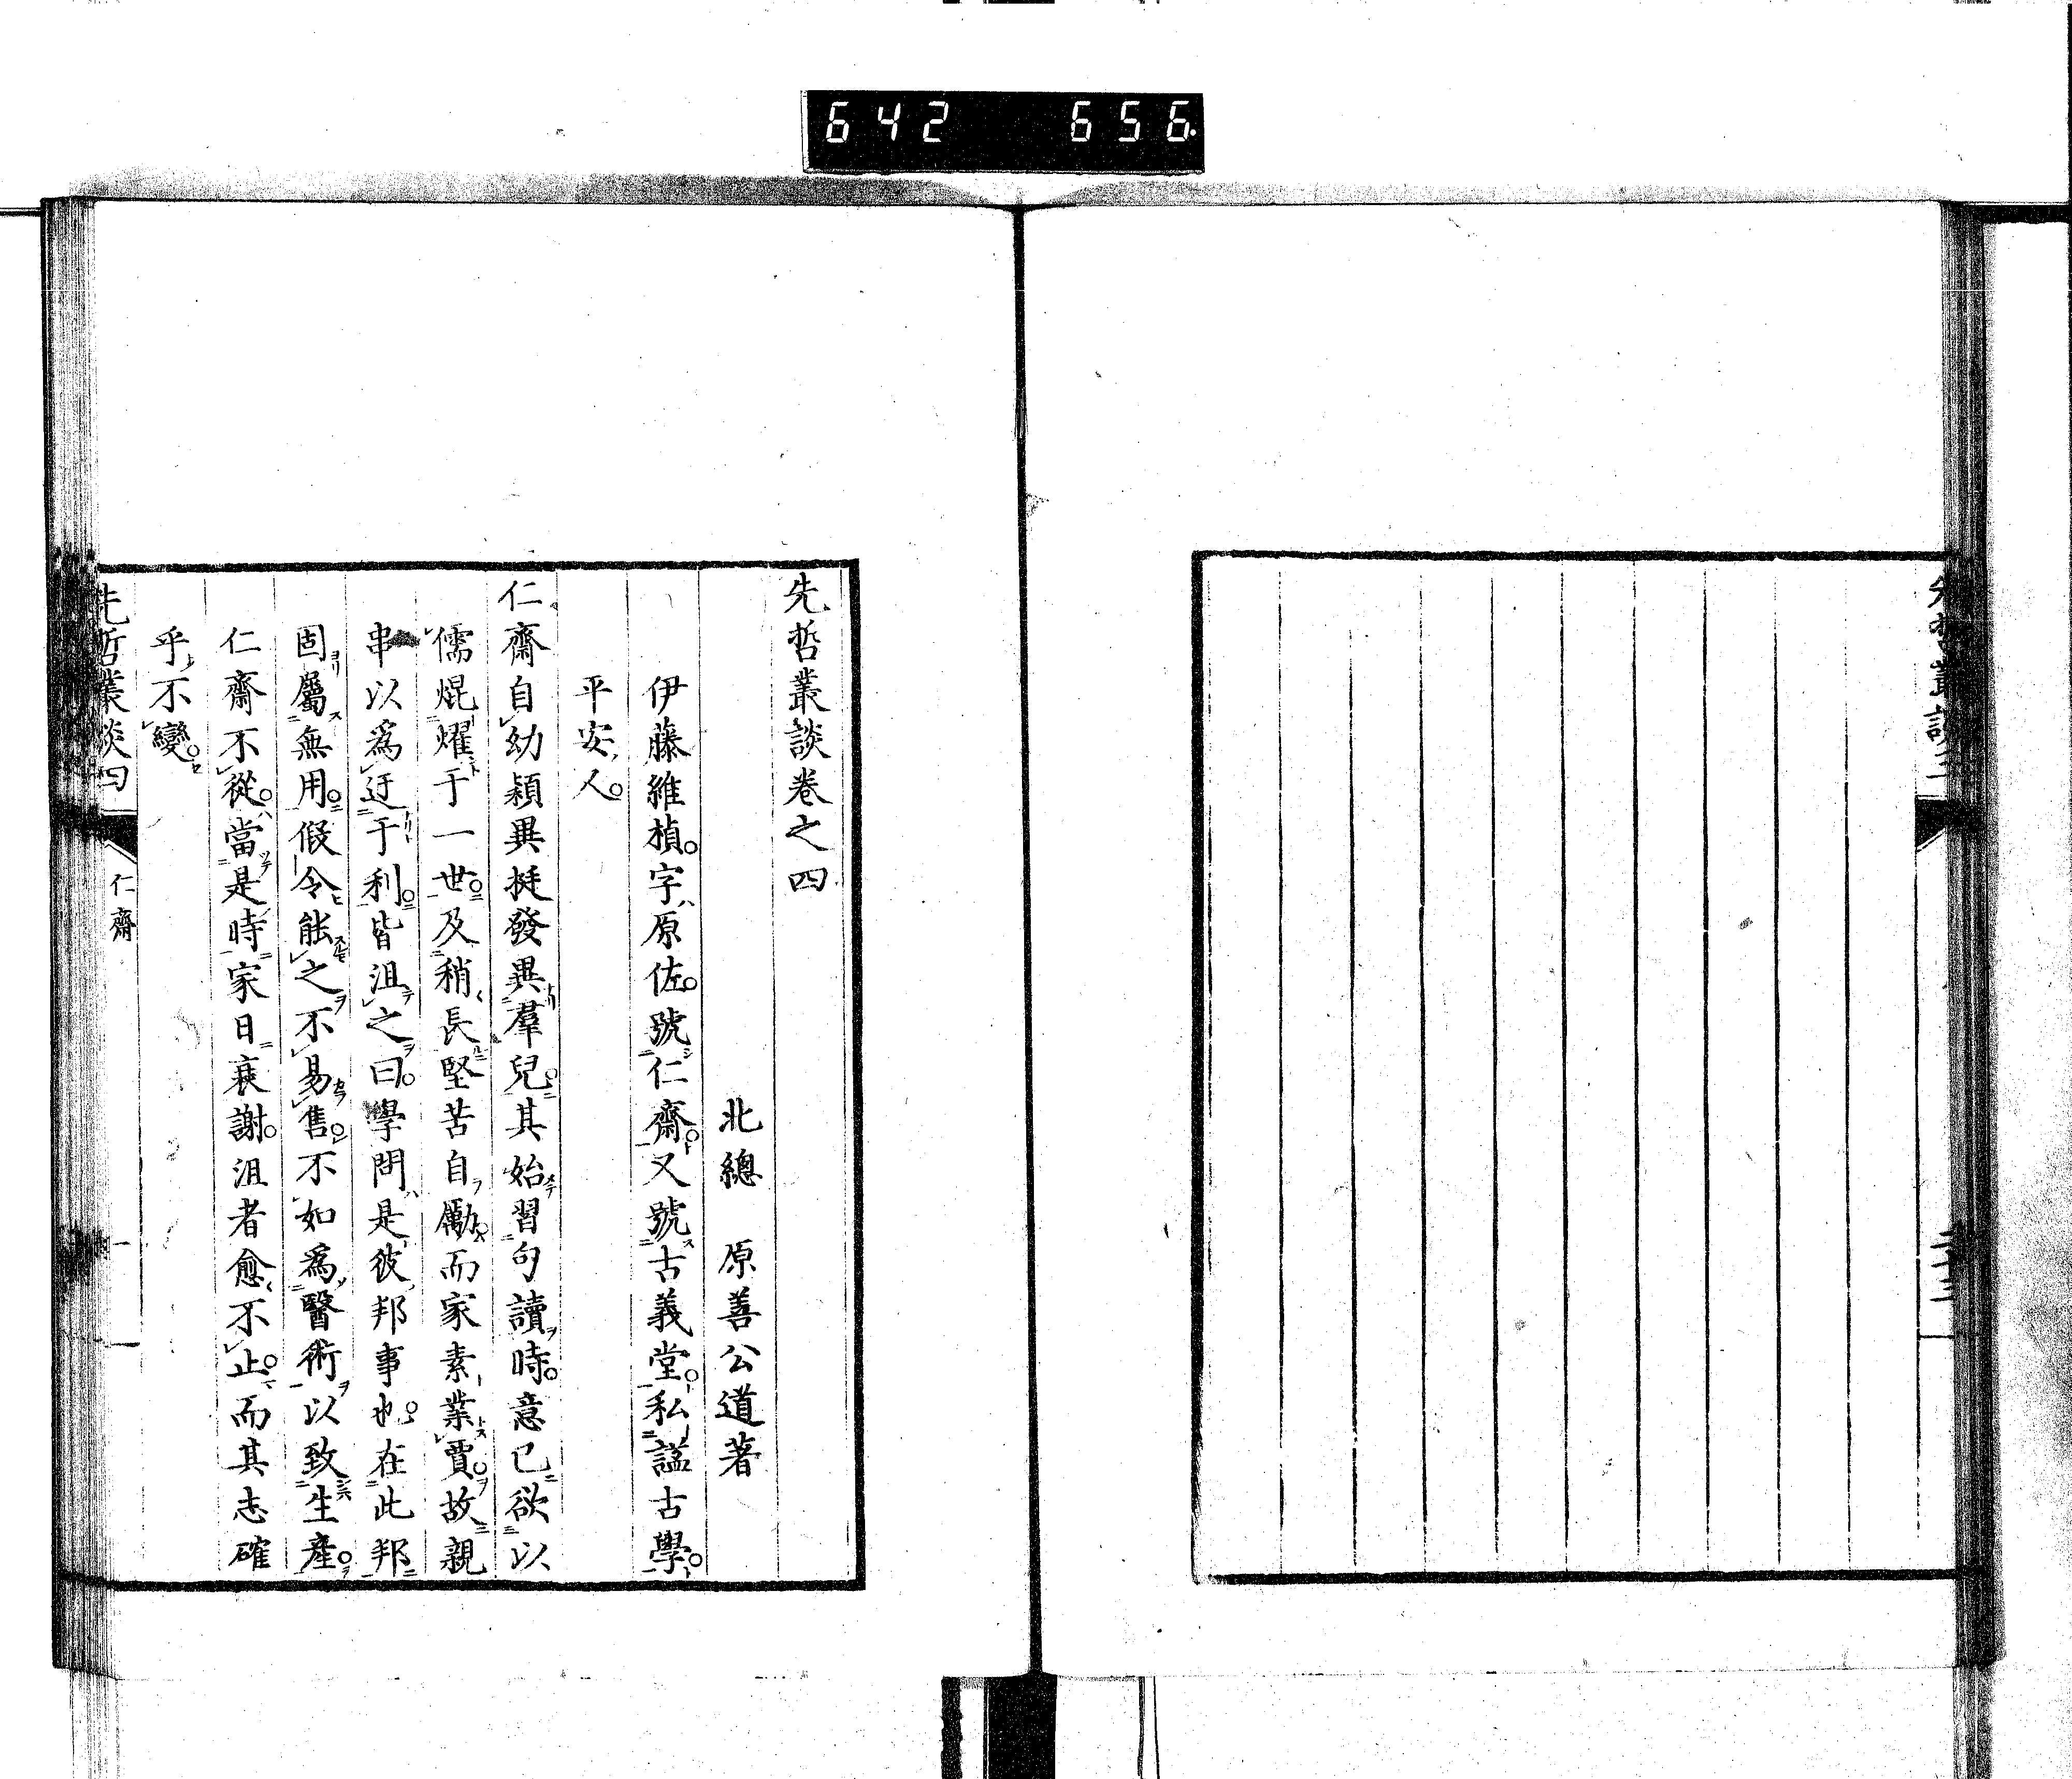 642 656
先哲叢談三
三十三
先哲叢談卷之四
北總 原善公道著
伊藤維楨字原佐號仁齋又號古義堂私謚古學
平安人
仁齋自幼穎異挺發異羣兒其始習句讀時意已欲以
儒焜燿于一世及稍長堅苦自勵而家素業賈故親
串以爲迂于利皆沮之曰學問是彼邦事也在此邦
固屬無用假令能之不易售不如爲醫術以致生產
仁齋不從當是時家日衰謝沮者愈不止而其志確
乎不變
先哲叢談四
仁齋
一